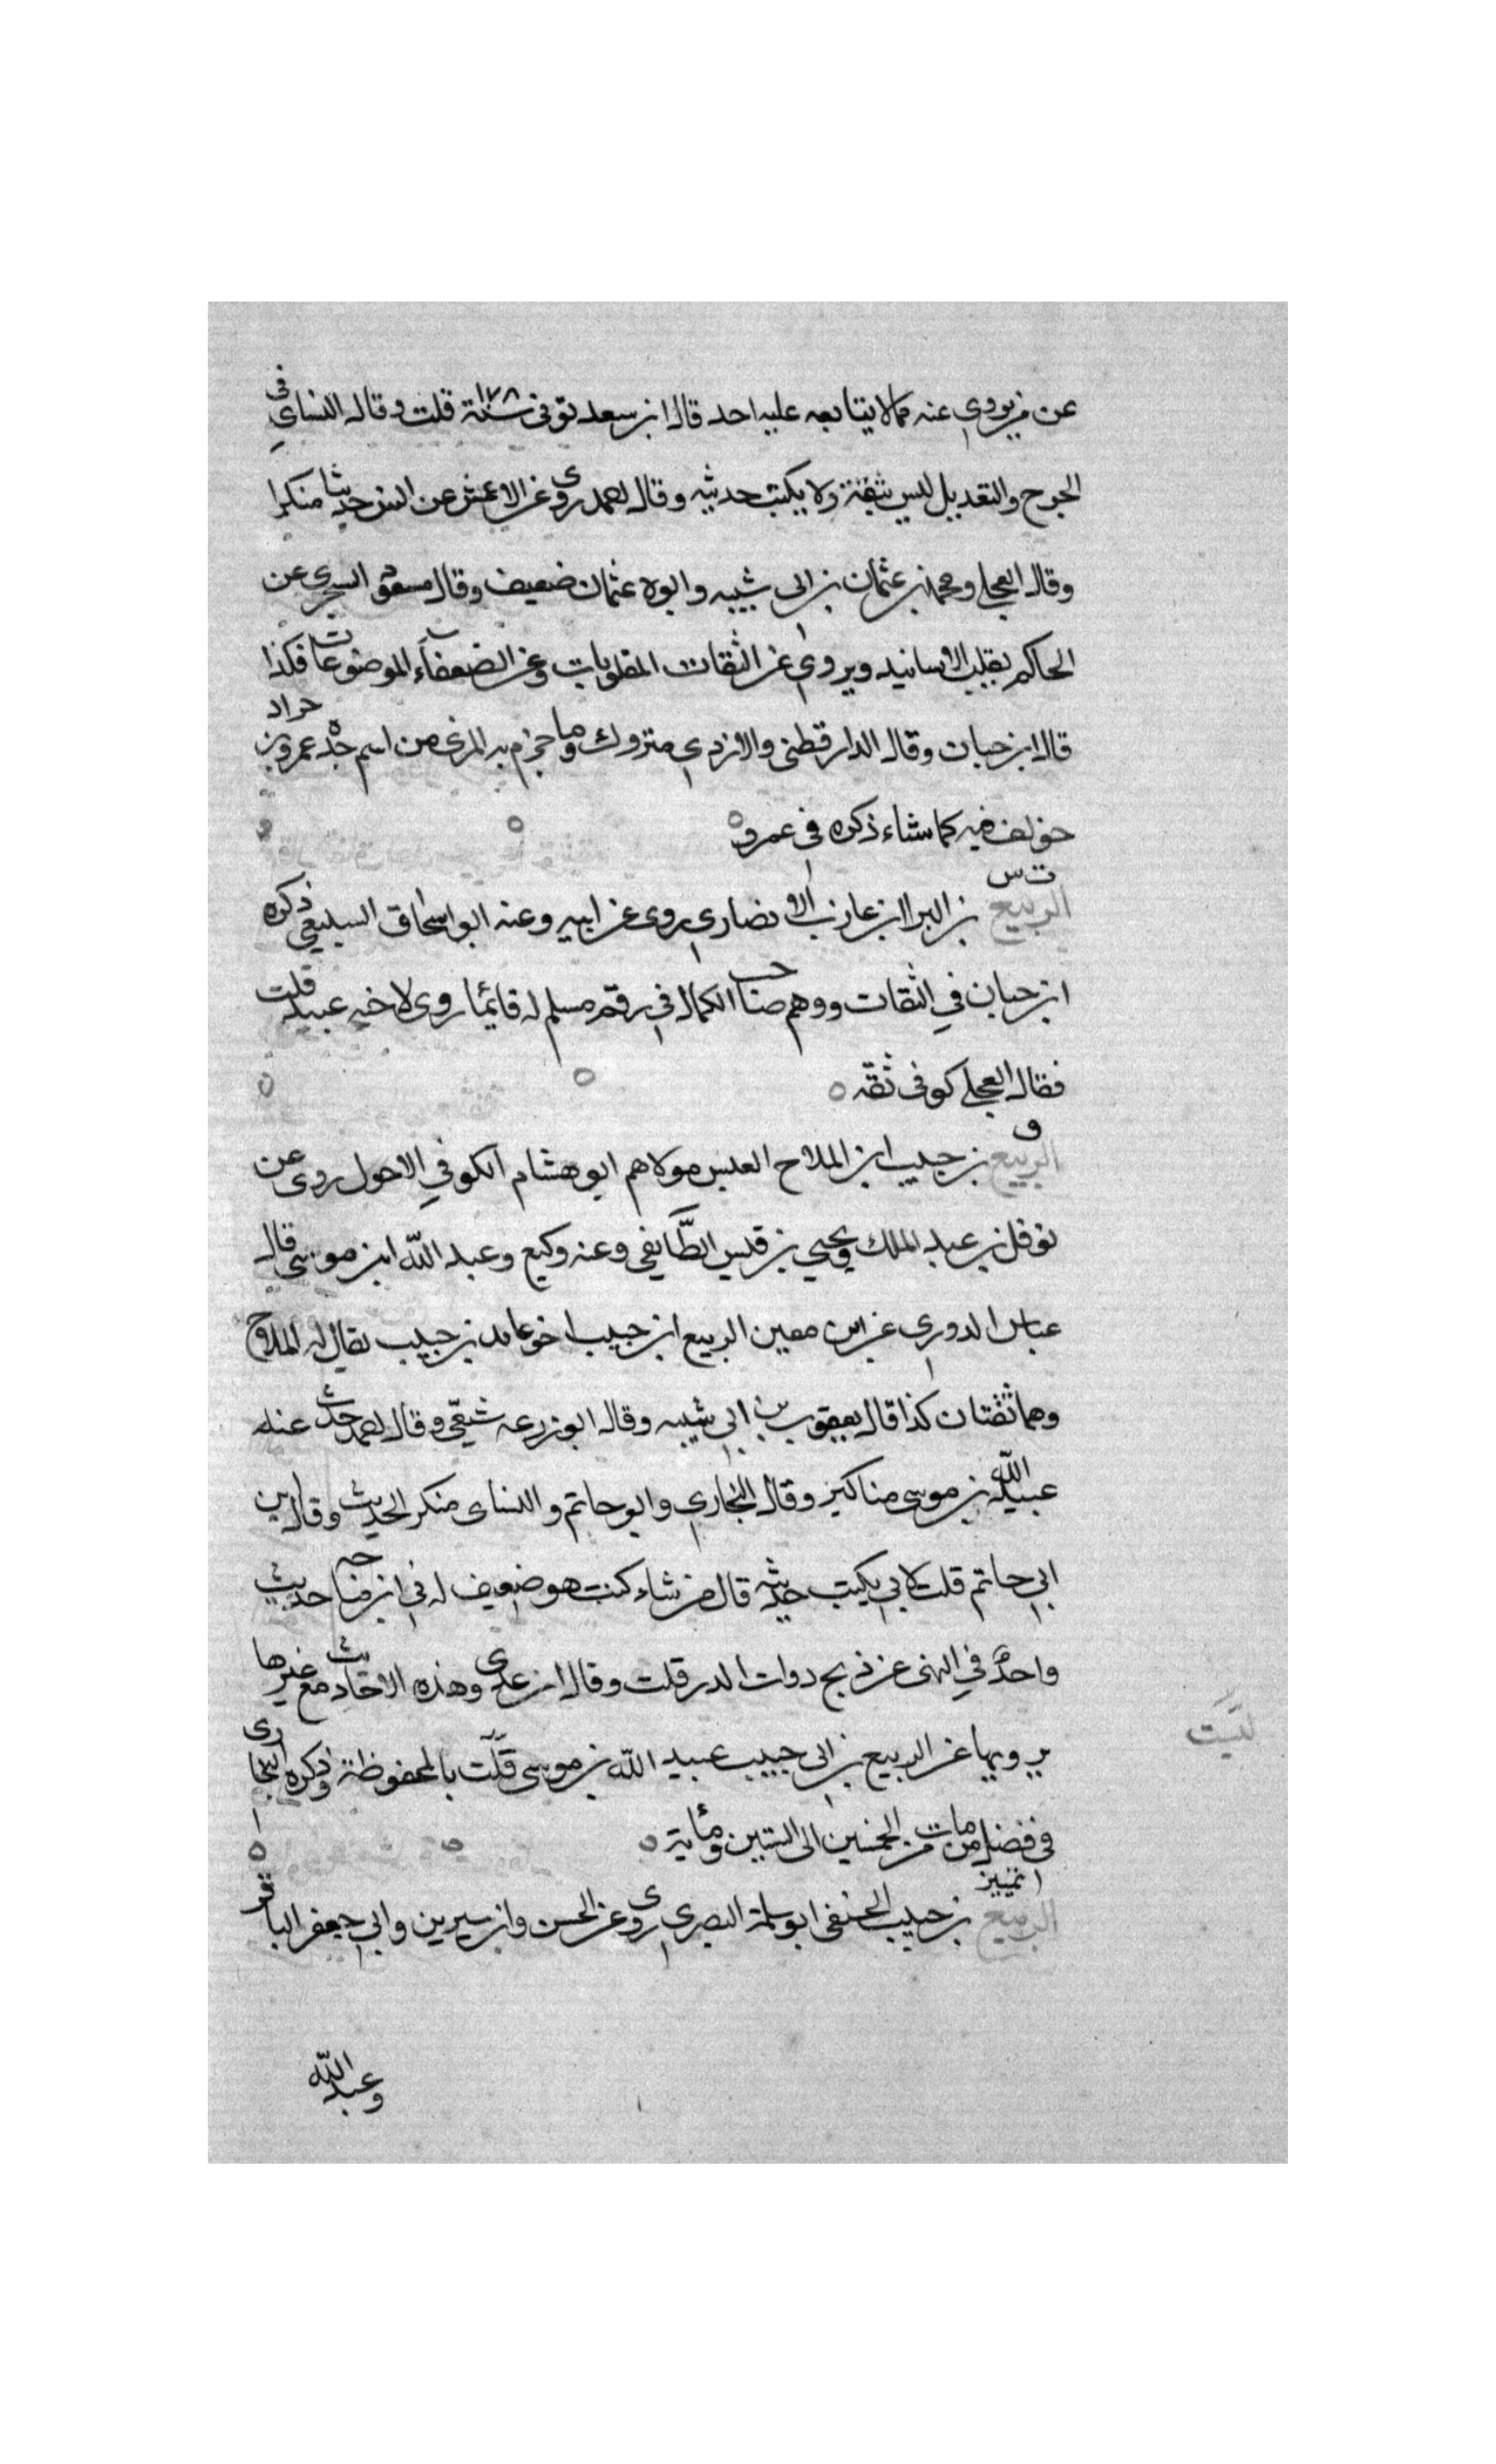 عن من يروي عنه مما لا يتابعه عليه احد قال ابن سعد توفى سنة ١٧٨ قلت وقال النساي في
الجرح والتعديل ليس بثقة ولا يكتب حديثه وقال احمد روى عن الاعمش عن انس حديثا منكرا
وقال العجلي ومحمد بن عثمان بن ابى شيبه وابوه عثمان ضعيف وقال مسعود السجزى عن
الحاكم يقلب الاسانيد ويروي عن الثقات المقلوبات وعن الضعفاء الموضوعات فكذا
قال ابن حبان وقال الدارقطنى والازدي متروك وما جزم به المزى من اسم جده عمرو بن جراد
خولف فيه كما شاء ذكره في عمرو
ت س
الربيع بن البرا ابن عازب الانصاري روى عن ابيه وعنه ابو اسحاق السبيعي ذكره
ابن حبان في الثقات ووهم صاحب الكمال في رقم مسلم له فانما روى لاخيه عبيد قلت
فقال العجلي كوفى ثقه
ق
الربيع بن حبيب ابن الملاح العبسي مولاهم ابو هشام الكوفي الاحول روى عن
نوفل بن عبد الملك ويحيى بن قيس الطَّايفي وعنه وكيع وعبد الله ابن موسى قال
عباس الدوري عن ابن معين الربيع ابن حبيب اخو عايد بن حبيب يقال له الملاح
وهما ثقتان كذا قال يعقوب بن ابي شيبه وقال ابو زرعه شيعي وقال احمد حدث عنه
عبيد الله بن موسى مناكير وقال البخاري وابو حاتم والنساى منكر الحديث وقال ابن
ابي حاتم قلت لابي يكتب حديثه قال من شاء كتب هو ضعيف له في ابن ماجه حديث
واحد في النهى عن ذبح دوات الدر قلت وقال ابن عدى وهذه الاحاديث مع غيرها
يرويها عن الربيع بن ابى حبيب عبيد الله بن موسى قلَّت بالمحفوظة وذكره البخارى
لَيست
في فضل من مات من الخمسين الى الستين ومأية
تمييز
الربيع بن حبيب الحنفى ابو سلمة البصري روى عن الحسن وابن سيرين وابي جعفر الباقر
وعبد الله